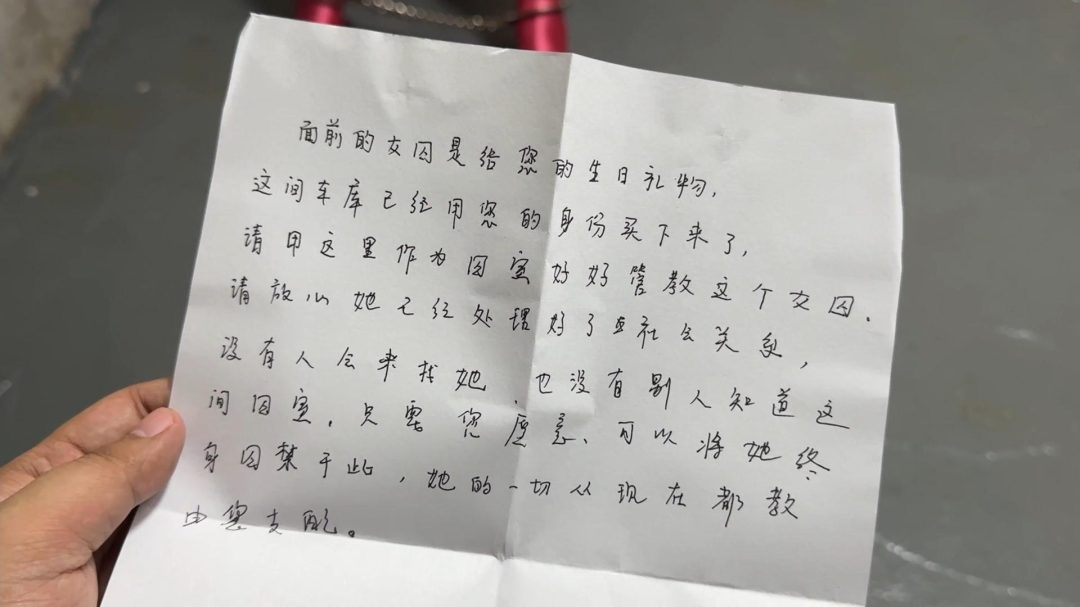 面前的女囚是给您的生日礼物，
这间车库已经用您的身份买下来了，
请用这里作为囚室好好管教这个女囚.
请放心她已经处理好了社会关系，
没有人会来找她，也没有别人知道这
间囚室。只要您愿意、可以将她终
身囚禁于此，她的一切从现在都教
由您支配。